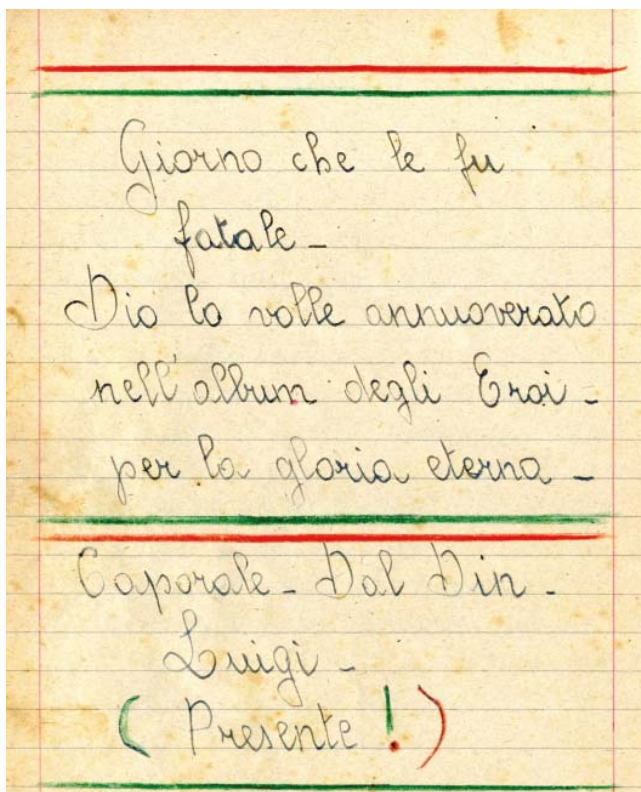 Giorno che le fu
fatale -
Dio lo volle annuoverato
nell'album degli Eroi -
per la gloria eterna -
Caporale - Dal Din -
Luigi -
( Presente ! )